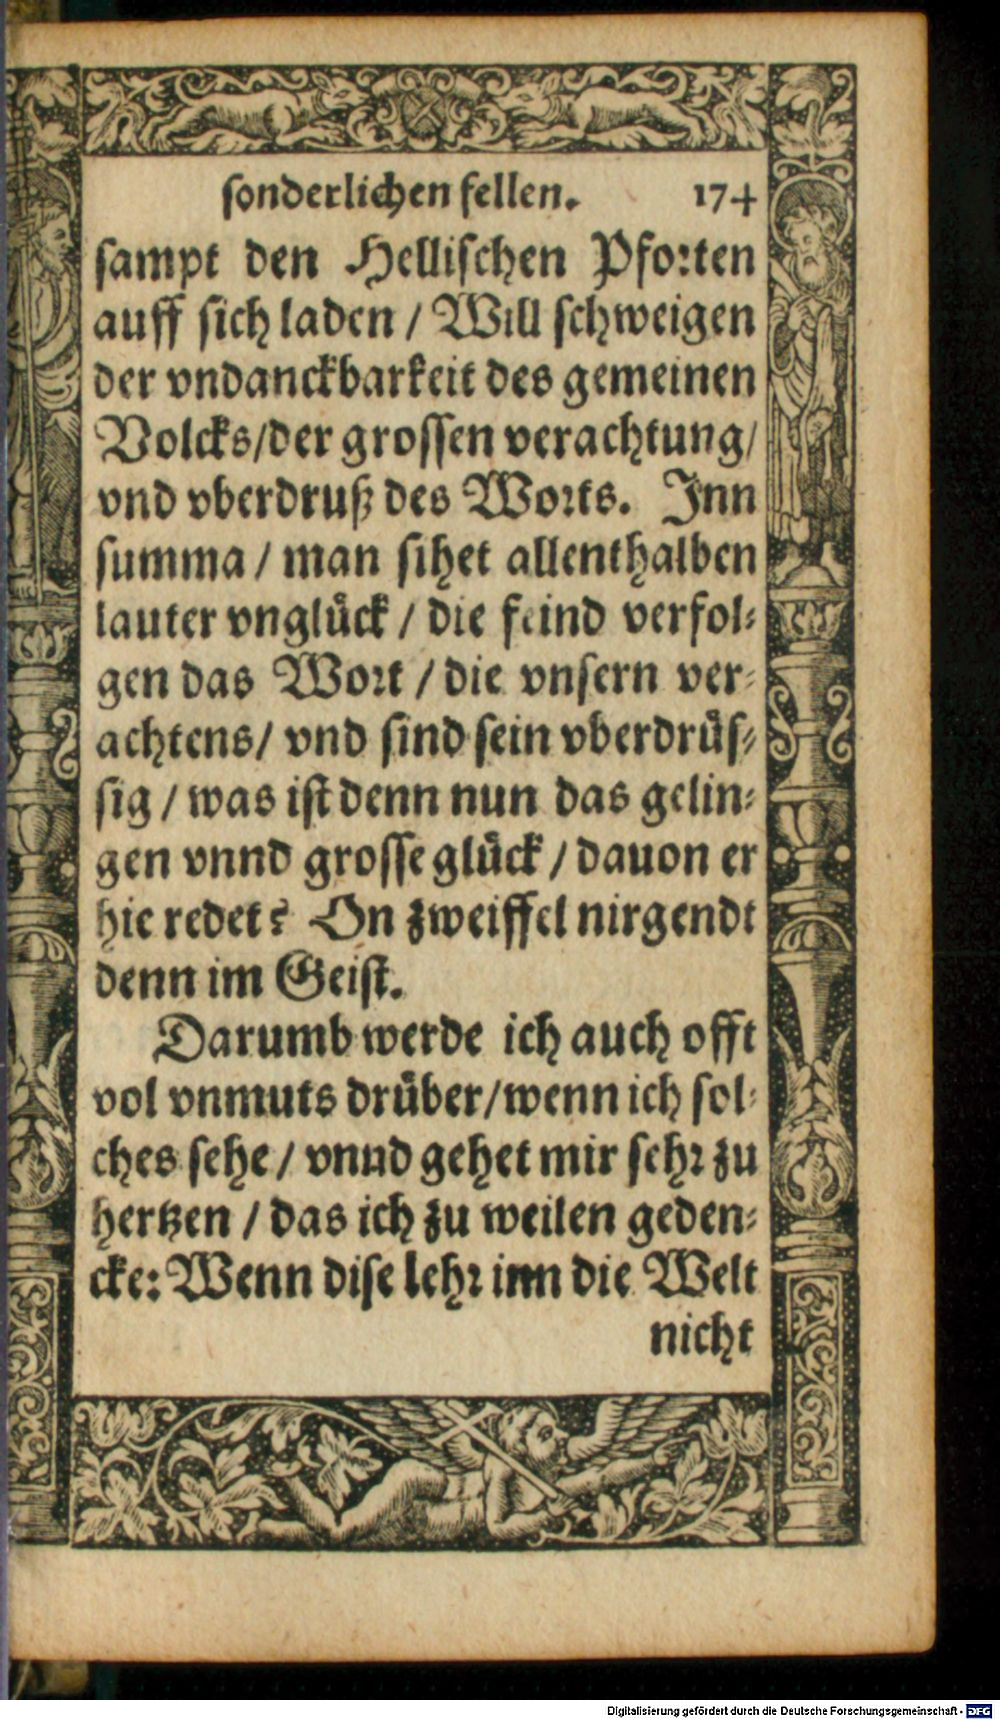 sonderlichen fellen. 174
sampt den Hellischen Pforten
auff sich laden / Will schweigen
der vndanckbarkeit des gemeinen
Volcks/der grossen verachtung/
vnd vberdruß des Worts. Inn
summa / man sihet allenthalben
lauter vnglück / die feind verfol-
gen das Wort / die vnsern ver-
achtens/ vnd sind sein vberdrüs-
sig / was ist denn nun das gelin-
gen vnnd grosse glück / dauon er
hie redet? On zweiffel nirgendt
denn im Geist.
Darumb werde ich auch offt
vol vnmuts drüber/wenn ich sol-
ches sehe / vnnd gehet mir sehr zu
hertzen / das ich zu weilen geden-
cke: Wenn dise lehr inn die Welt
nicht
Digitalisierung gefördert durch die Deutsche Forschungsgemeinschaft - DFG